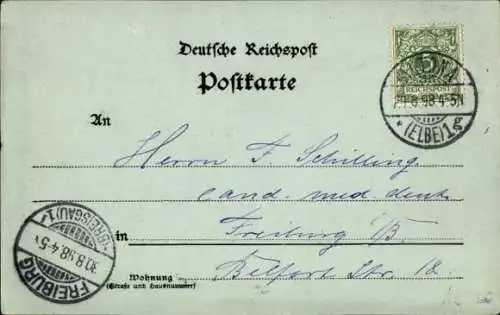 Deutsche Reichspost
Postkarte
5
REICHSPOST
ALTONA
29.8.98.4-5N
* (ELBE) 1g
An
Herrn F. Schilling
cand. med. dent.
in Freiburg i/B
Wohnung Belfort Str. 18.
(Straße und Hausnummer)
FREIBURG
30.8.98.4-5N
(BREISGAU) 1.